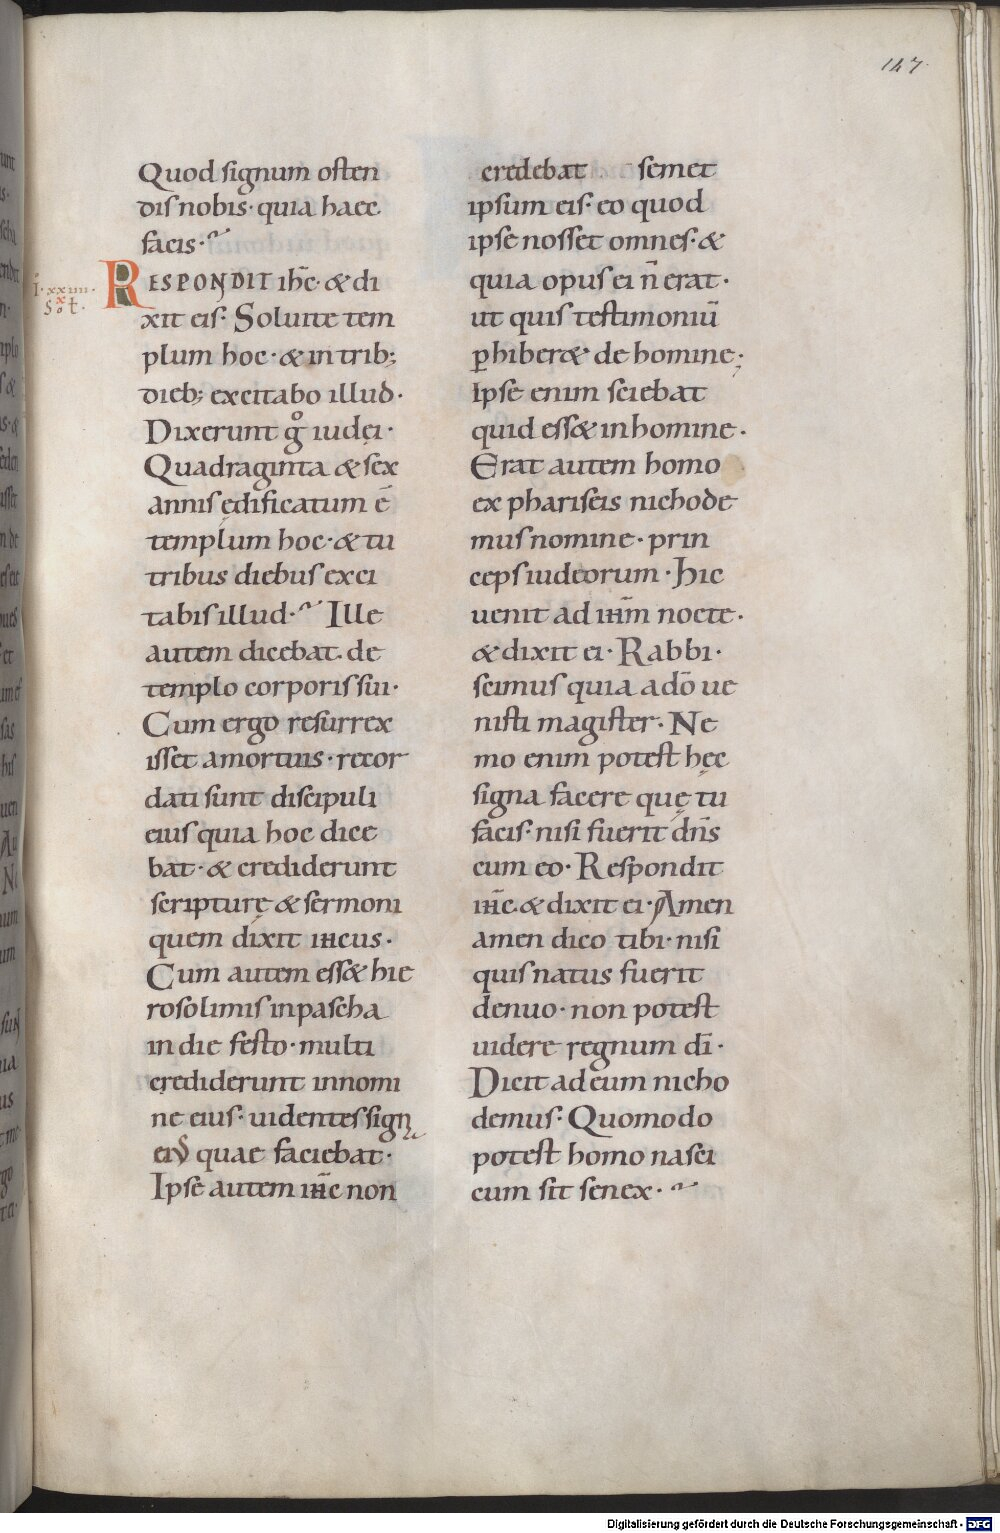 147
Quod signum osten
dis nobis· quia haec
facis·
RESPONDIT ihc̄· & di
I· xxiiii·
x
Sol·
xit eis· Soluite tem
plum hoc· & in trib;
dieb; excitabo illud·
Dixerunt g̊ iudei·
Quadraginta & sex
annis ędificatum ē
templum hoc· & tu
tribus diebus exci
tabis illud· Ille
autem dicebat· de
templo corporis sui·
Cum ergo resurrex
isset a mortuis· recor
dati sunt discipuli
eius quia hoc dice
bat· & crediderunt
scripturę & sermoni
quem dixit iħcus·
Cum autem ess& hie
rosolimis in pascha
in die festo· multi
crediderunt in nomi
ne eius· uidentes signa
eius quae faciebat·
Ipse autem iħc non
credebat semet
ipsum eis· eo quod
ipse nosset omnes· &
quia opus ei n̄ erat·
ut quis testimoniū
ꝑhiber& de homine;
Ipse enim sciebat
quid ess& in homine·
Erat autem homo
ex phariseis nichode
mus nomine· prin
ceps iudeorum· Hic
uenit ad iħm nocte·
& dixit ei· Rabbi·
scimus quia a dō ue
nisti magister· Ne
mo enim potest hęc
signa facere quę tu
facis· nisi fuerit dn̄s
cum eo· Respondit
iħc· & dixit ei· Amen
amen dico tibi· nisi
quis natus fuerit
denuo· non potest
uidere regnum dī·
Dicit ad eum nicho
demus· Quomodo
potest homo nasci
cum sit senex·
Digitalisierung gefördert durch die Deutsche Forschungsgemeinschaft - DFG